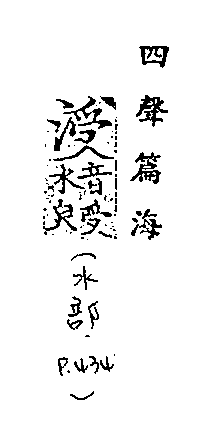 四聲篇海
涭
音受
水皃
(水部. P.434)